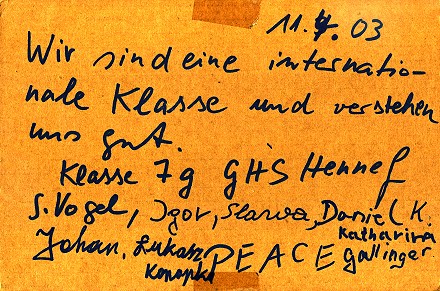 11.4.03
Wir sind eine internatio-
nale Klasse und verstehen
uns gut.
Klasse 7g GHS Hennef
S. Vogel, Igor, Slawa, Daniel K.
Johan, Lukasz Konopka PEACE Katharina Gallinger